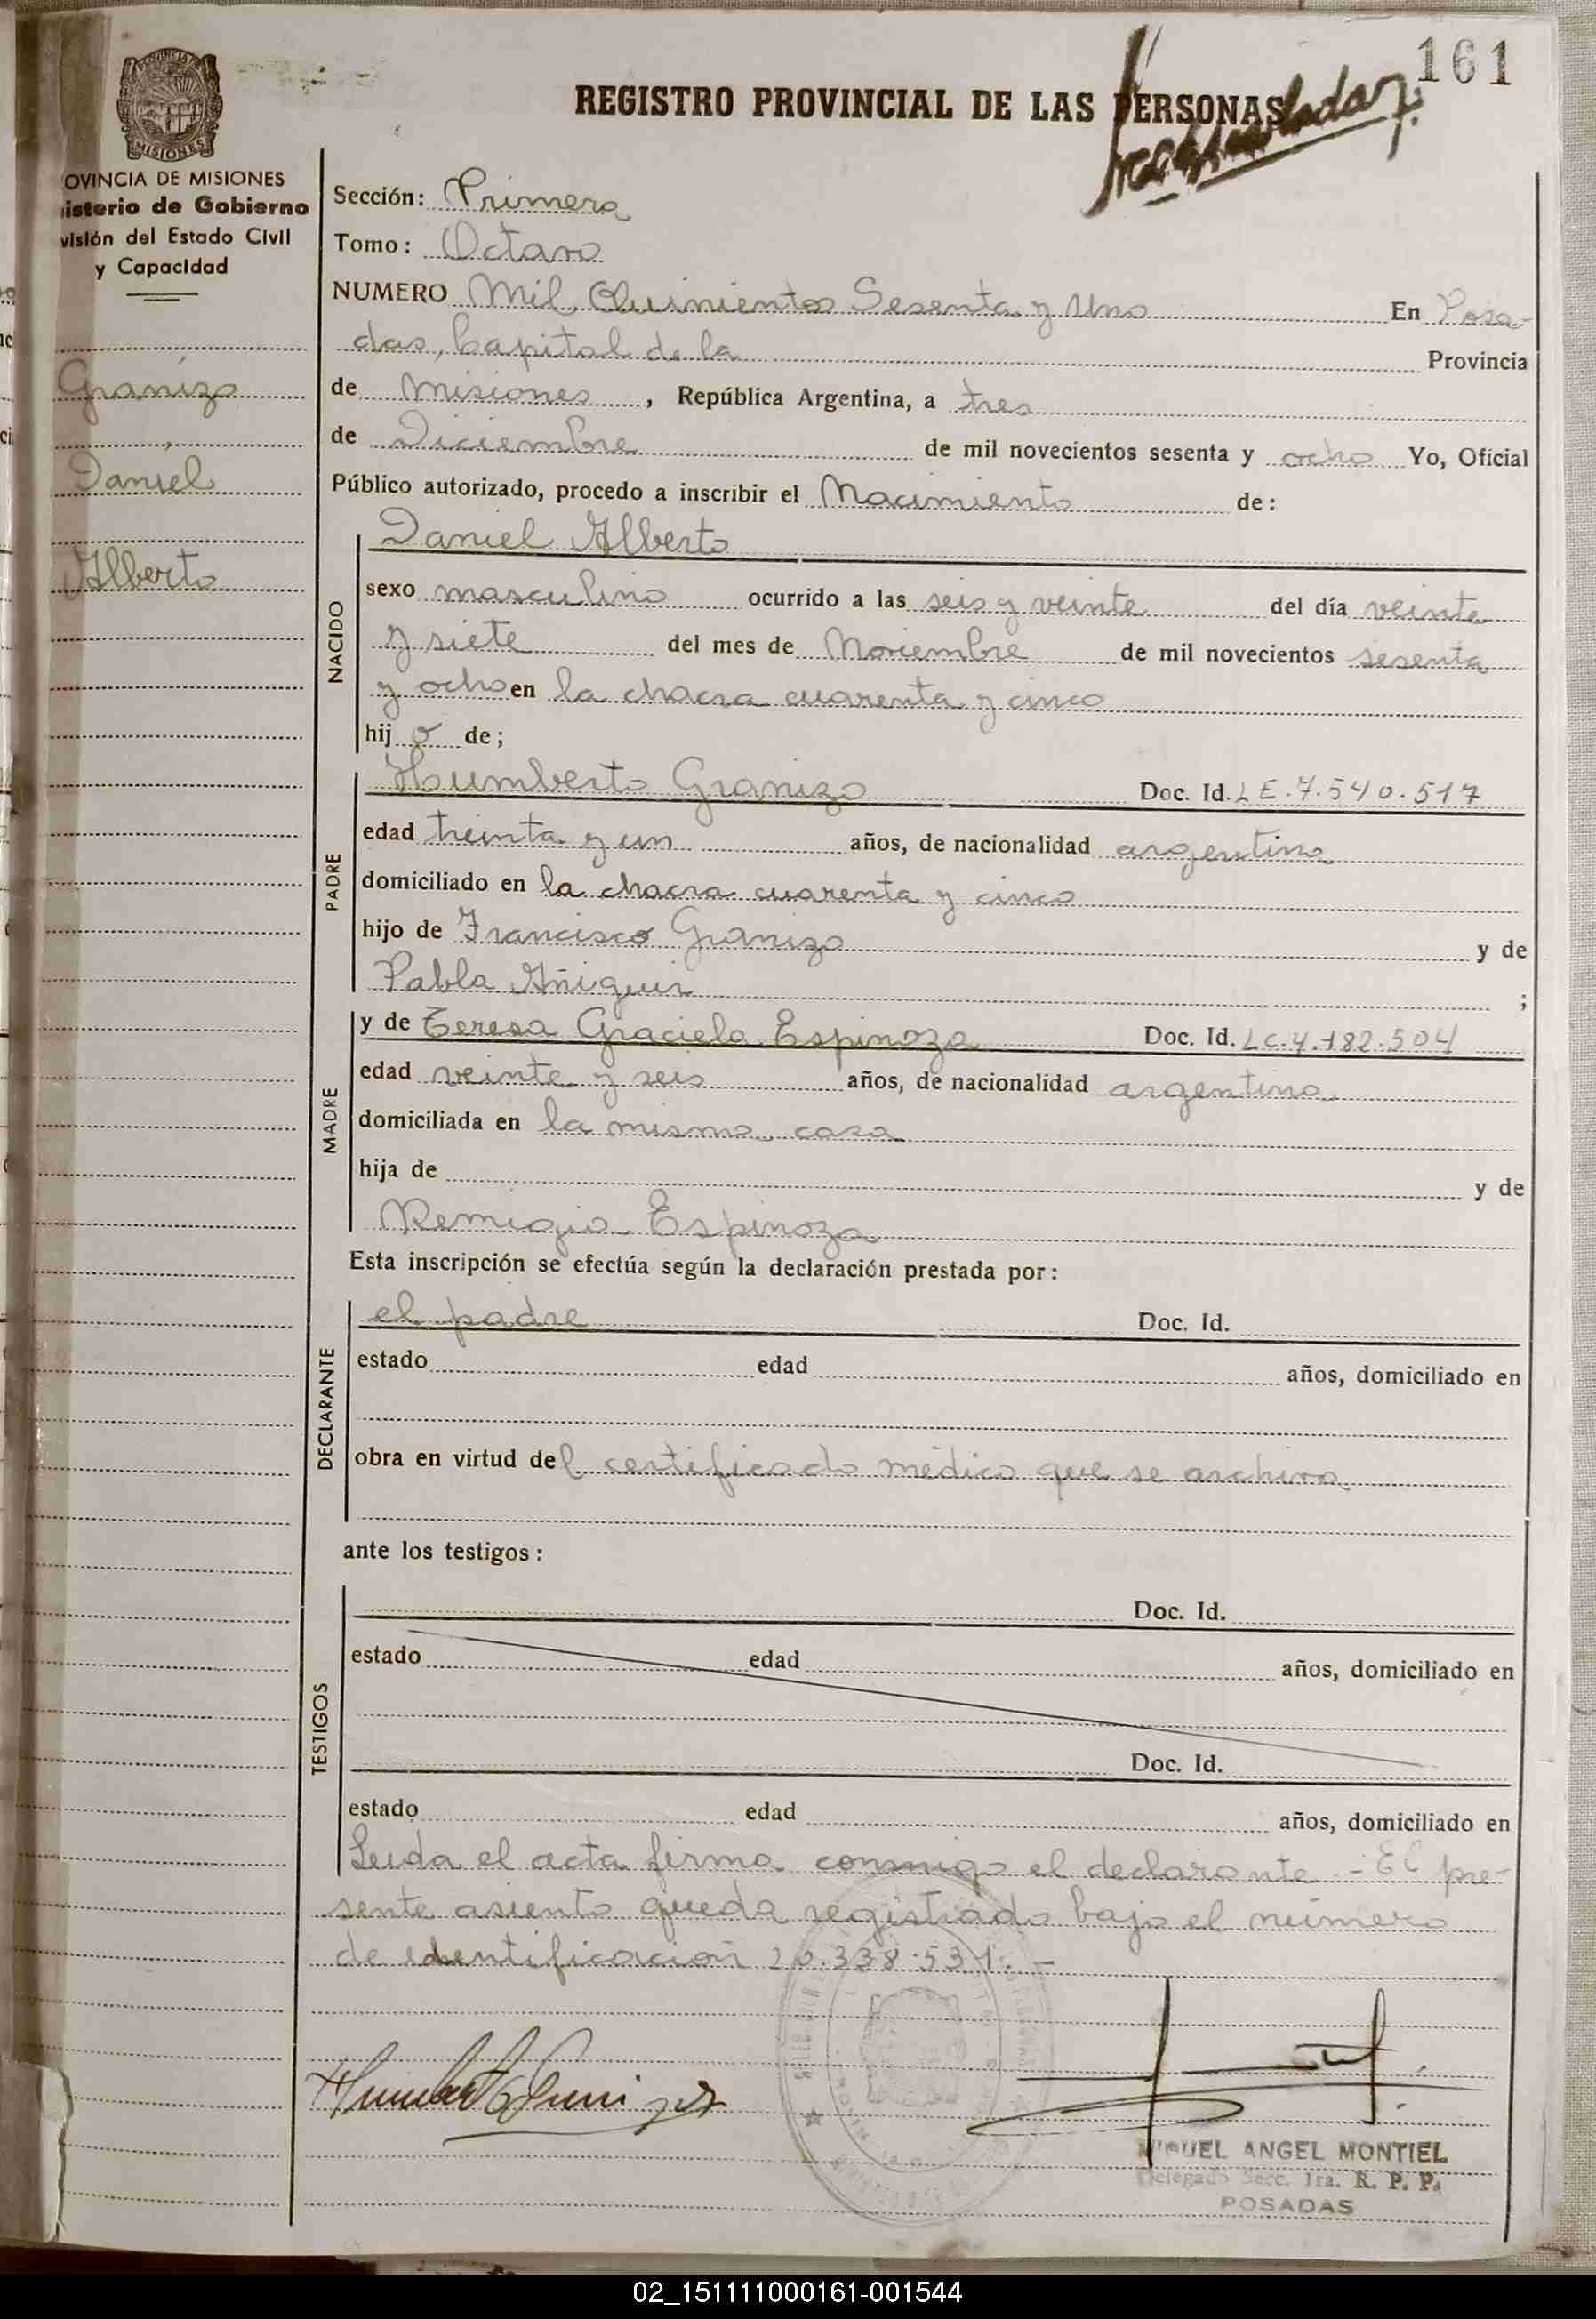 161
REGISTRO PROVINCIAL DE LAS PERSONAS
MISIONES
OVINCIA DE MISIONES
isterio de Gobierno
visión del Estado Civil
y Capacidad
Granizo
Daniel
Alberto
Sección: Primera
Tomo: Octavo
NUMERO Mil Quinientos Sesenta y Uno En Posa-
das, Capital de la Provincia
de Misiones, República Argentina, a tres
de Diciembre de mil novecientos sesenta y ocho Yo, Oficial
Público autorizado, procedo a inscribir el Nacimiento de:
NACIDO
Daniel Alberto
sexo masculino ocurrido a las seis y veinte del día veinte
y siete del mes de Noviembre de mil novecientos sesenta
y ocho en la chacra cuarenta y cinco
hij o de;
PADRE
Humberto Granizo Doc. Id. LE.7.540.517
edad treinta y un años, de nacionalidad argentina
domiciliado en la chacra cuarenta y cinco
hijo de Francisco Granizo y de
Pabla ;
MADRE
y de Teresa Graciela Espinoza Doc. Id. LC.4.182.504
edad veinte y seis años, de nacionalidad argentina
domiciliada en la misma casa
hija de y de
Remigia Espinoza
Esta inscripción se efectúa según la declaración prestada por:
DECLARANTE
el padre Doc. Id.
estado edad años, domiciliado en
obra en virtud del certificado médico que se archiva
ante los testigos:
TESTIGOS
Doc. Id.
estado edad años, domiciliado en
Doc. Id.
estado edad años, domiciliado en
Leida el acta firma conmigo el declarante.- El pre-
sente asiento queda registrado bajo el número
de identificación 20.338.531.-
MIGUEL ANGEL MONTIEL
Delegado Secc. 1ra. R. P. P.
POSADAS
02_151111000161-001544